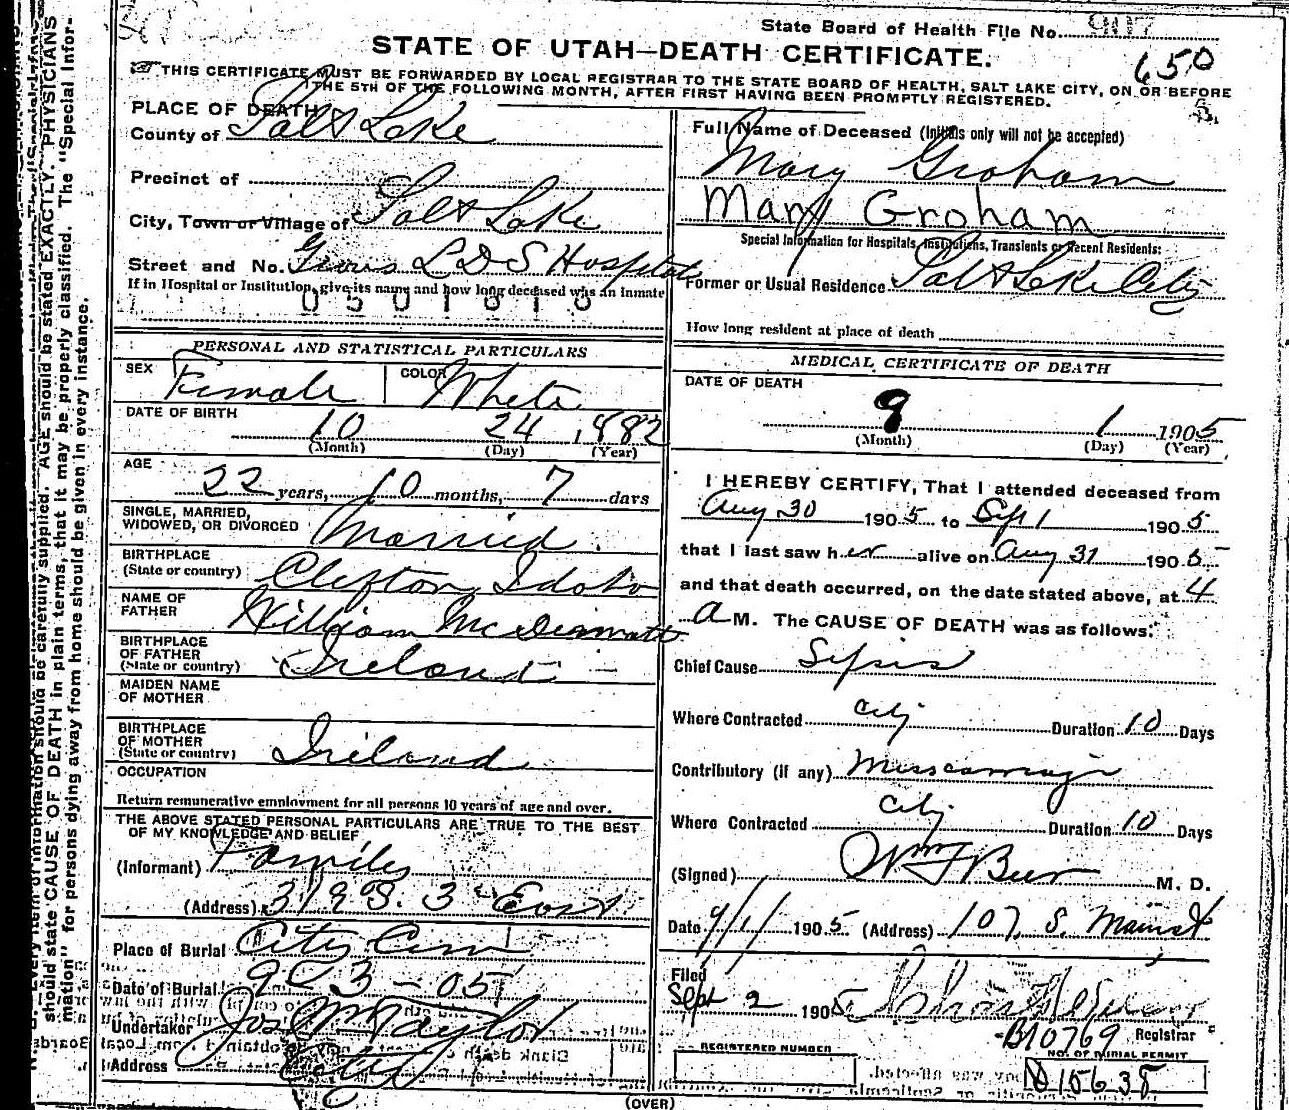 State Board of Health File No. 907
STATE OF UTAH—DEATH CERTIFICATE.
650
THIS CERTIFICATE MUST BE FORWARDED BY LOCAL REGISTRAR TO THE STATE BOARD OF HEALTH, SALT LAKE CITY, ON OR BEFORE
THE 5TH OF THE FOLLOWING MONTH, AFTER FIRST HAVING BEEN PROMPTLY REGISTERED.
PLACE OF DEATH
County of Salt Lake
Precinct of
City, Town or Village of Salt Lake
Street and No. L D S Hospital
If in Hospital or Institution, give its name and how long deceased was an inmate
0501610
Full Name of Deceased (Initials only will not be accepted)
Mary Graham
Mary Groham
Special Information for Hospitals, Institutions, Transients or Recent Residents:
Former or Usual Residence Salt Lake City
How long resident at place of death
PERSONAL AND STATISTICAL PARTICULARS
SEX Female
COLOR White
DATE OF BIRTH
10 24 1882
(Month) (Day) (Year)
AGE
22 years, 10 months, 7 days
SINGLE, MARRIED,
WIDOWED, OR DIVORCED Married
BIRTHPLACE
(State or country) Clifton, Idaho
NAME OF
FATHER William McDiamatt
BIRTHPLACE
OF FATHER
(State or country) Ireland
MAIDEN NAME
OF MOTHER
BIRTHPLACE
OF MOTHER
(State or country) Ireland
OCCUPATION
Return remunerative employment for all persons 10 years of age and over.
THE ABOVE STATED PERSONAL PARTICULARS ARE TRUE TO THE BEST
OF MY KNOWLEDGE AND BELIEF
(Informant) Families
(Address) 319 S. 3 East
Place of Burial City Cem
Date of Burial 9 3-05
Undertaker Jos Wm Taylor
Address City
MEDICAL CERTIFICATE OF DEATH
DATE OF DEATH
9 1 1905
(Month) (Day) (Year)
I HEREBY CERTIFY, That I attended deceased from
Aug 30 1905 to Sept 1 1905
that I last saw her alive on Aug 31 1905
and that death occurred, on the date stated above, at 4
a M. The CAUSE OF DEATH was as follows:
Chief Cause Sepsis
Where Contracted City Duration 10 Days
Contributory (if any) Misscarriage
Where Contracted City Duration 10 Days
(Signed) Wm F Beer M. D.
Date 9/1/ 1905 (Address) 107 S. Main St
Filed
Sept 2 1905
B10769 Registrar
REGISTERED NUMBER
NO. OF BURIAL PERMIT
D15638
(OVER)
should be carefully supplied. AGE should be stated EXACTLY. PHYSICIANS
should state CAUSE OF DEATH in plain terms, that it may be properly classified. The "Special Infor-
mation" for persons dying away from home should be given in every instance.